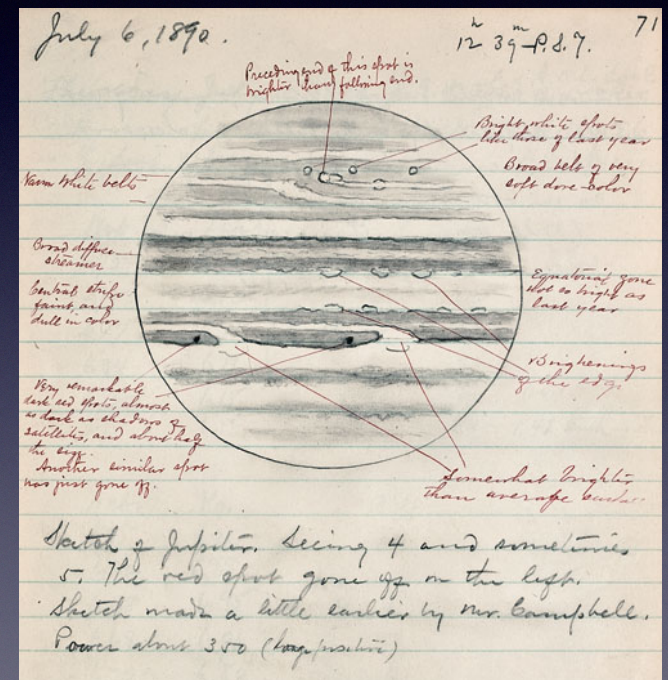 July 6, 1890.
12h 39m P.S.T.
71
Preceding end of this spot is
brighter than following end.
Bright white spots
like those of last year
Broad belt of very
soft dove-color
Narrow white belts
Broad diffuse
streamer
Central stripe
faint and
dull in color
Equatorial zone
not so bright as
last year
Brightenings
of the edge
Very remarkable
dark red spots, almost
as dark as shadows of
satellites, and about half
the size.
Another similar spot
has just gone off.
Somewhat brighter
than average
Sketch of Jupiter. Seeing 4 and sometimes
5. The red spot gone off on the left.
Sketch made a little earlier by Mr. Campbell.
Power about 350 (large positive)